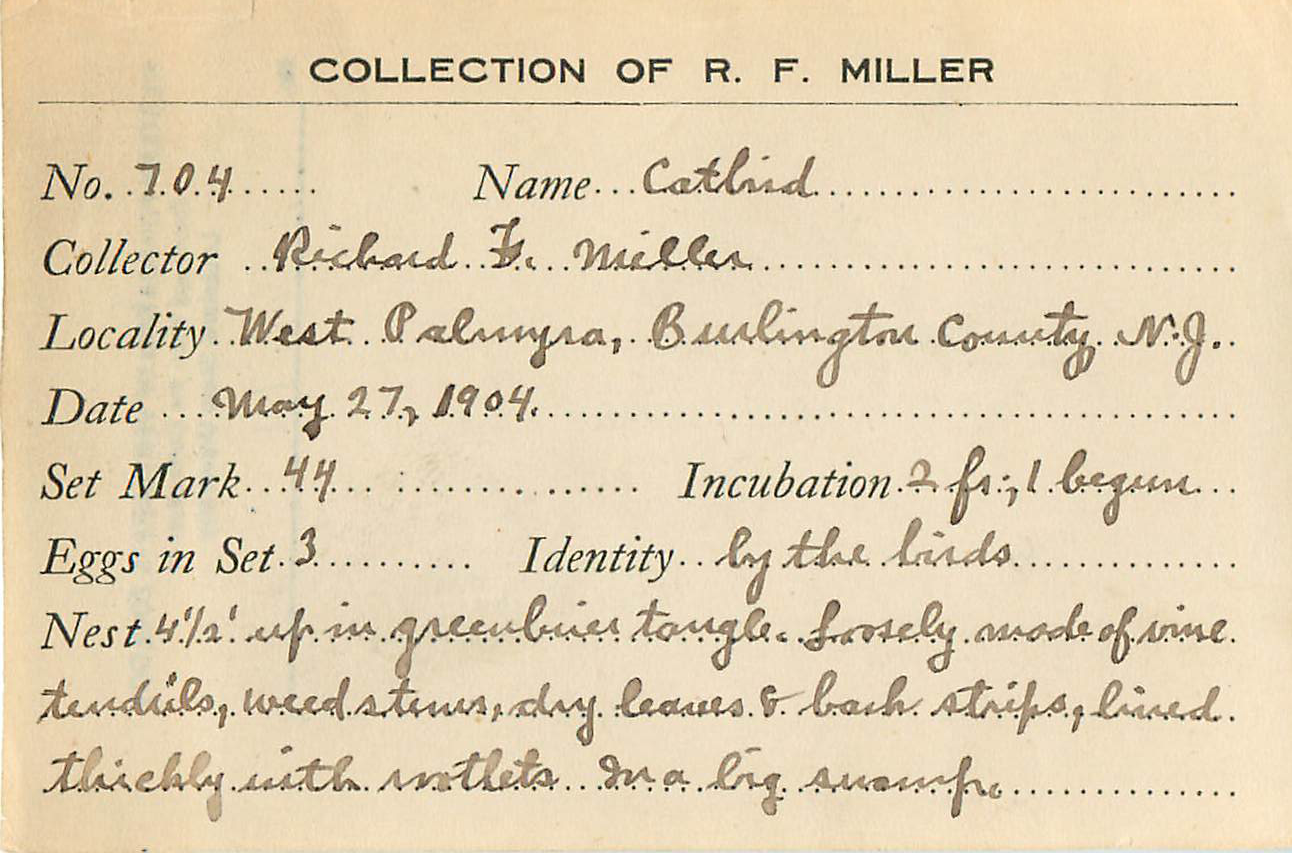 COLLECTION OF R. F. MILLER
No. 704 Name Catbird
Collector Richard F. Miller
Locality West Palmyra, Burlington County N.J.
Date May 27, 1904.
Set Mark 44 Incubation 2 fs; 1 begun
Eggs in Set 3 Identity by the birds
Nest 4½' up in greenbrier tangle. Loosely made of vine
tendrils, weed stems, dry leaves & bark strips, lined
thickly with rootlets. In a big swamp.